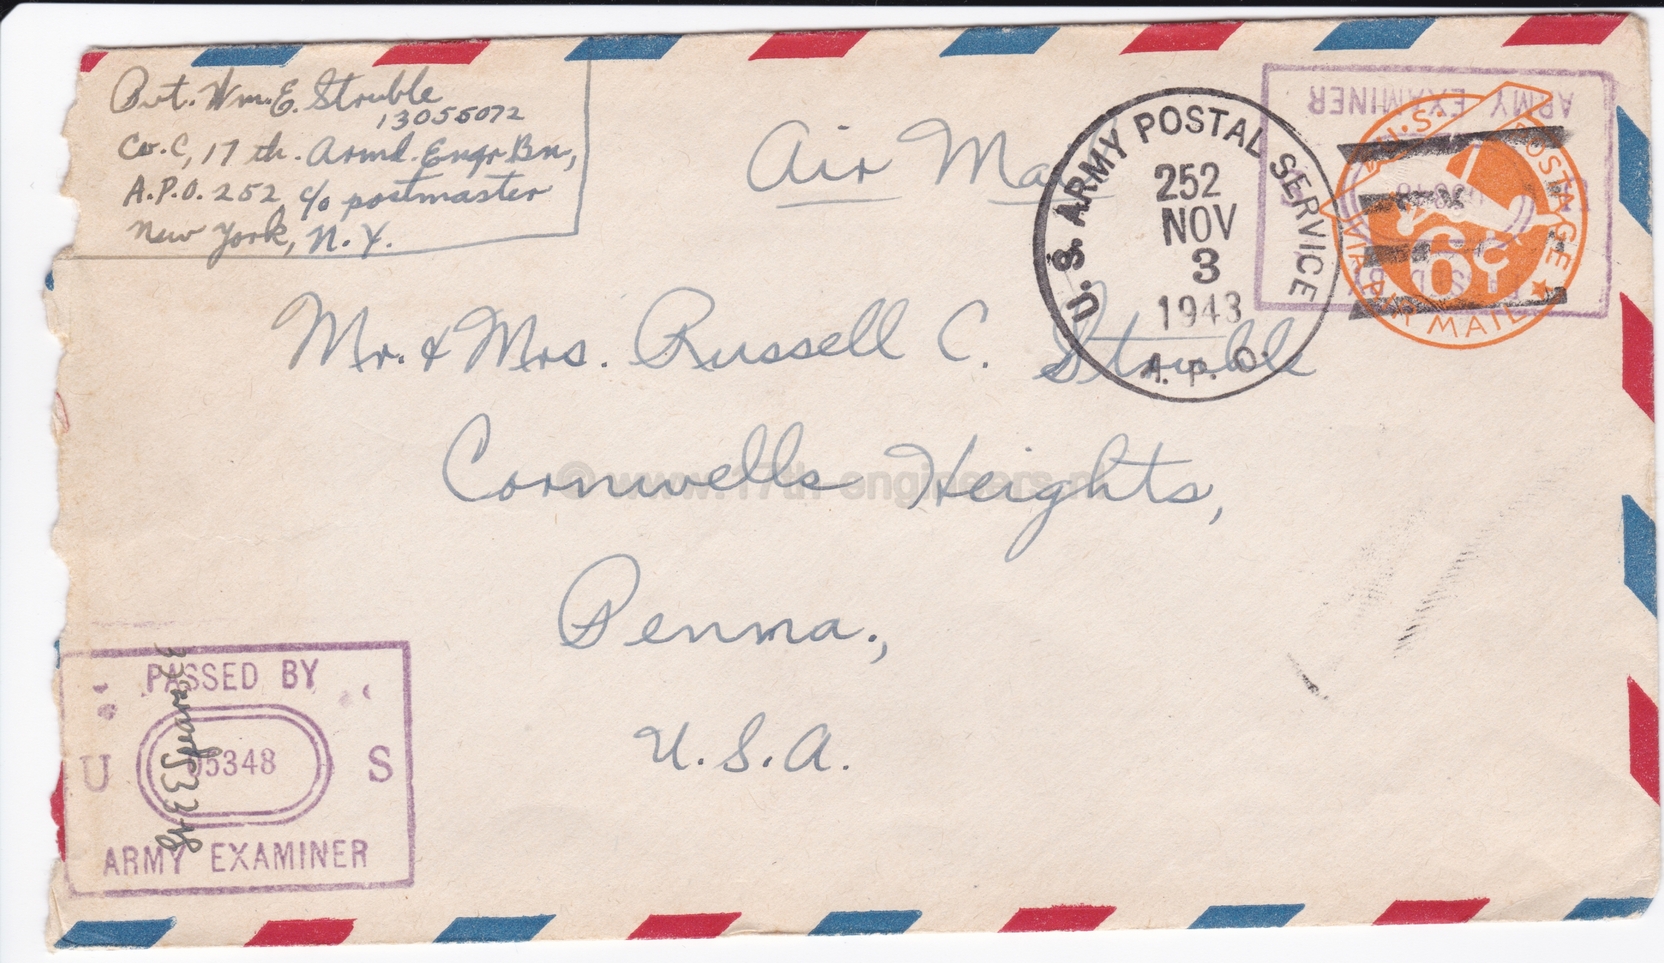 Pvt. Wm. E. Struble
13055072
Co. C, 17 th. Armd. Engr Bn,
A.P.O. 252, c/o postmaster
New York, N. Y.
Air Ma
U.S. ARMY POSTAL SERVICE
252
NOV
3
1943
A. P. O.
ARMY EXAMINER
U.S. POSTAGE
6¢
VIA AIR MAIL
Mr. & Mrs. Russell C. Struble
Cornwells Heights,
© www.17th-engineers.nl
Penna.,
U.S.A.
PASSED BY
U 05348 S
ARMY EXAMINER